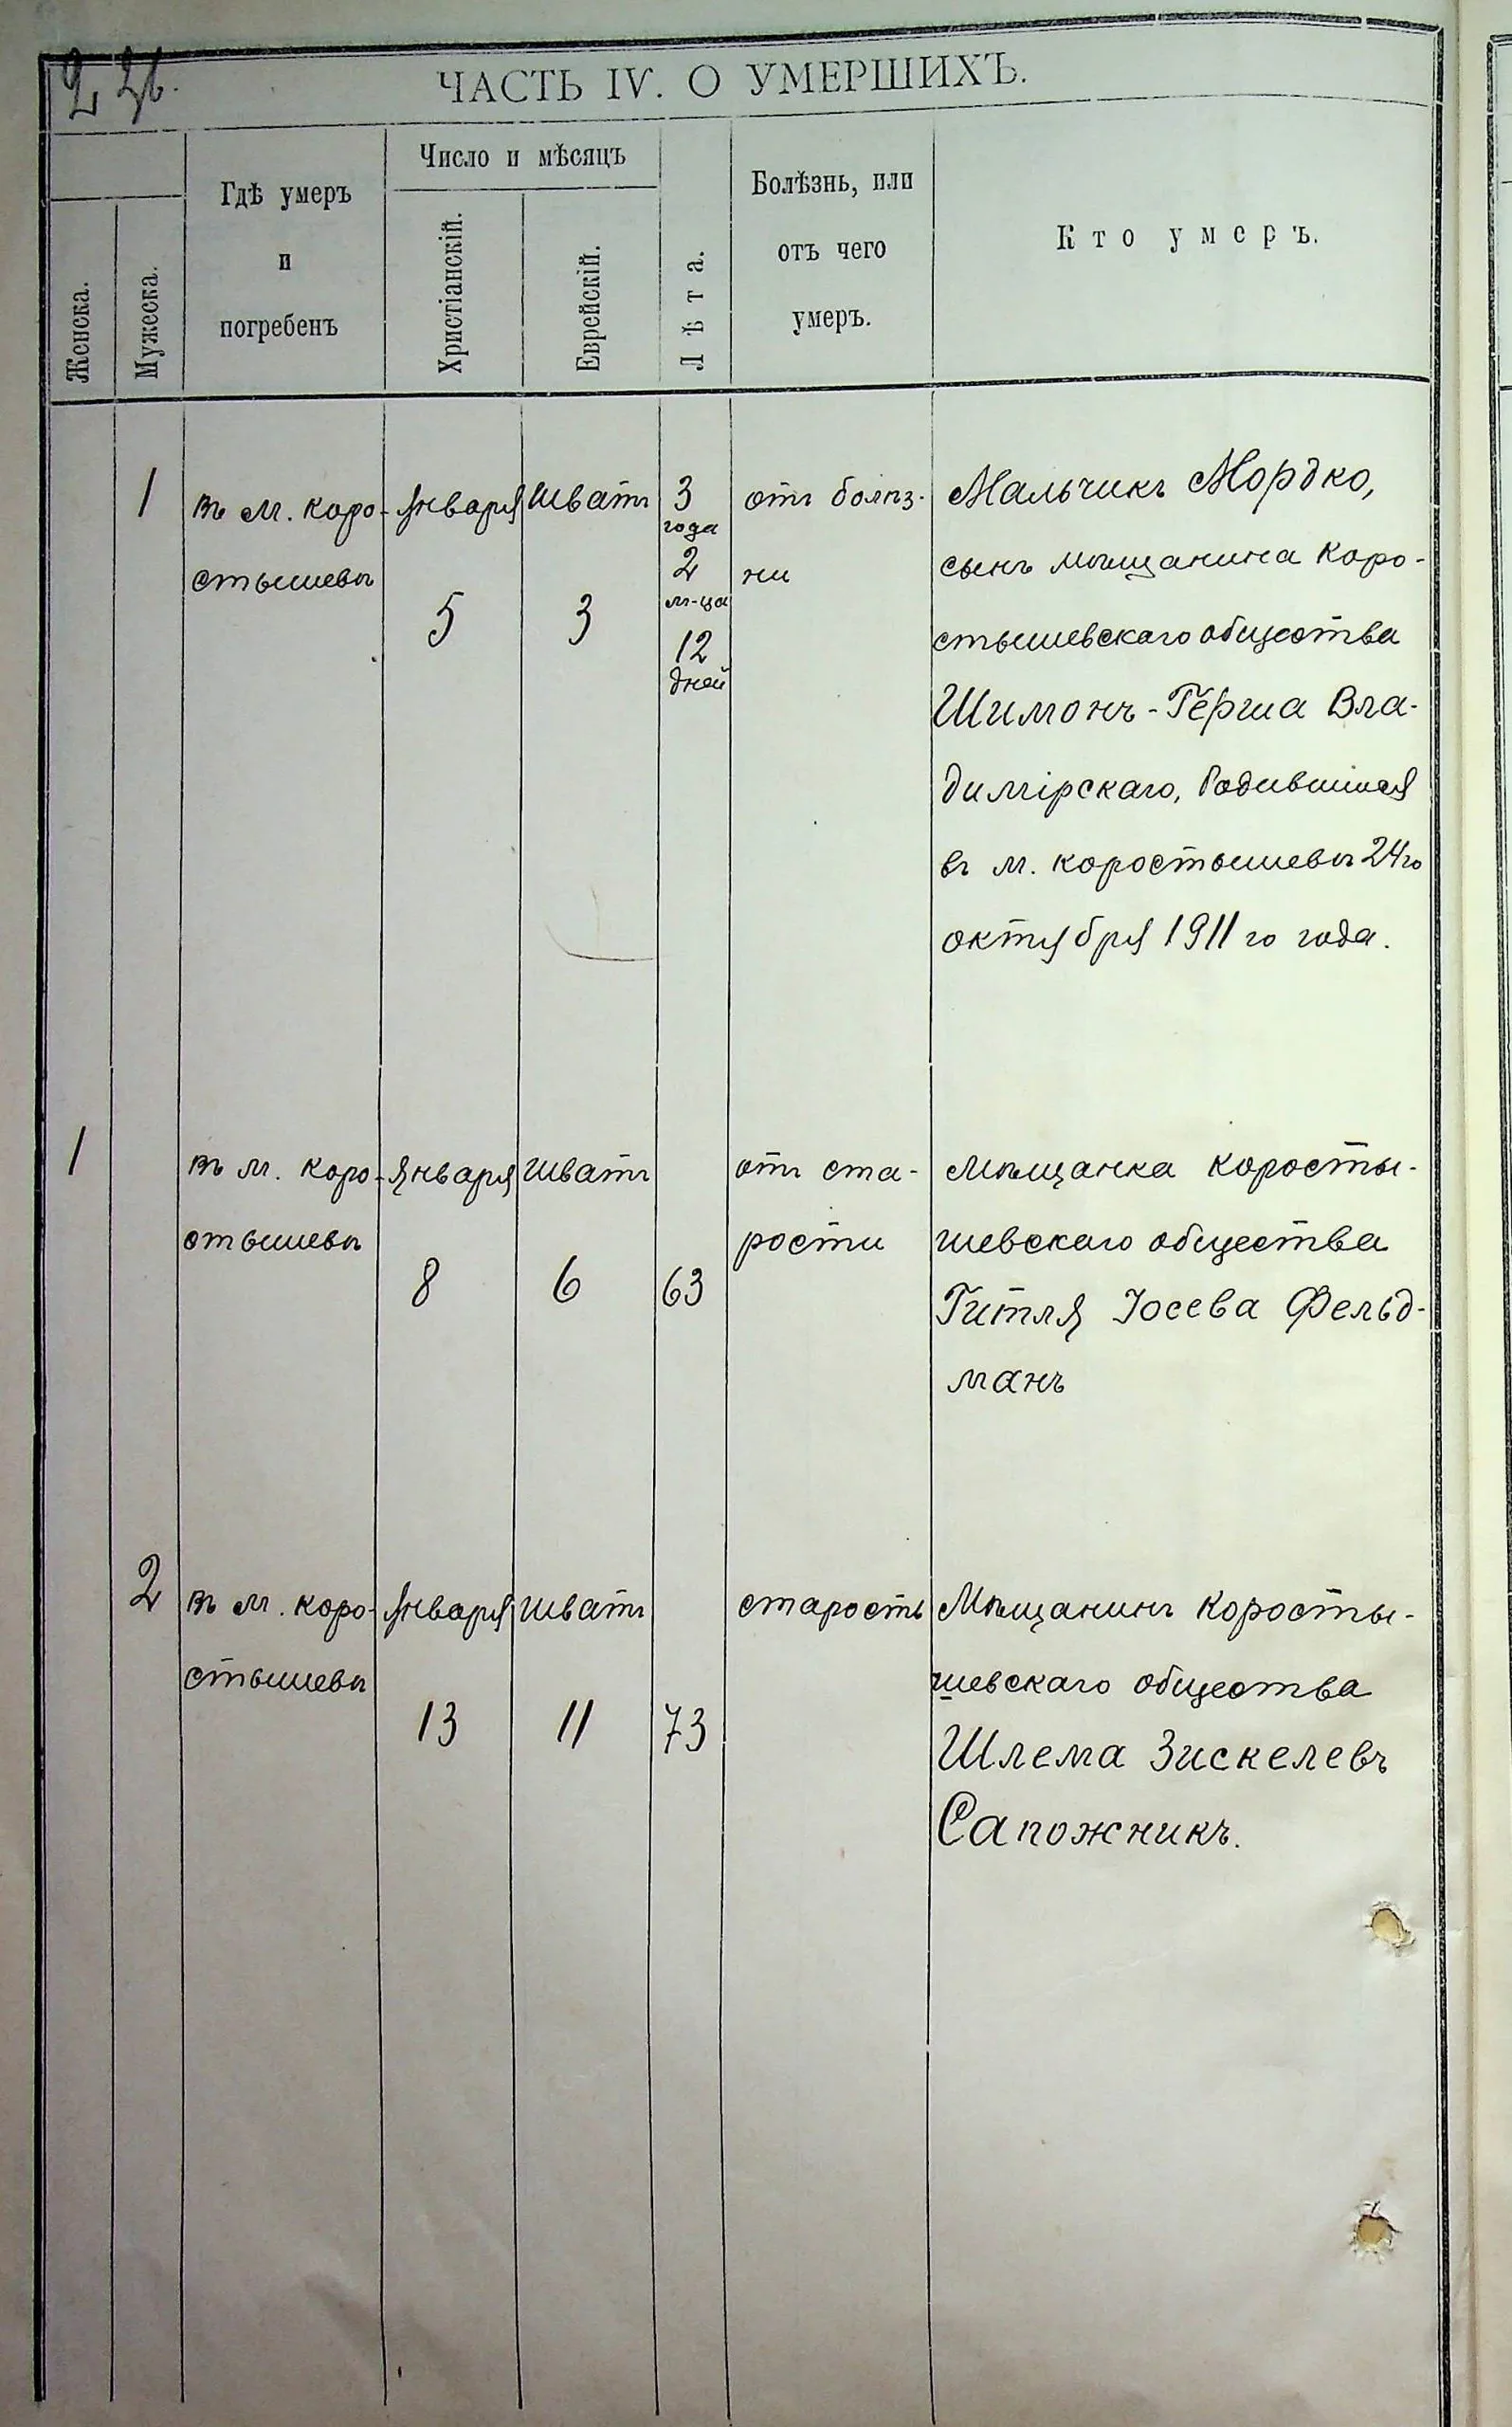 ЧАСТЬ IV. О УМЕРШИХЪ.
Женска.
Мужеска.
Гдѣ умеръ
и
погребенъ
Число и мѣсяцъ
Христіанскій.
Еврейскій.
Лѣта.
Болѣзнь, или
отъ чего
умеръ.
Кто умеръ.
1
въ м. Коро-
стышевѣ
Января
5
Шватъ
3
3
года
2
м-ца
12
дней
отъ болѣз-
ни
Мальчикъ Мордко,
сынъ мѣщанина Коро-
стышевскаго общества
Шимонъ-Герша Вла-
димірскаго, Родившійся
въ м. Коростышевѣ 24го
октября 1911 го года.
1
въ м. Коро-
стышевѣ
Января
8
Шватъ
6
63
отъ ста-
рости
Мѣщанка Коросты-
шевскаго общества
Гитля Іосева Фельд-
манъ
2
въ м. Коро-
стышевѣ
Января
13
Шватъ
11
73
старость
Мѣщанинъ Коросты-
шевскаго общества
Шлема Зискелевъ
Сапожникъ.